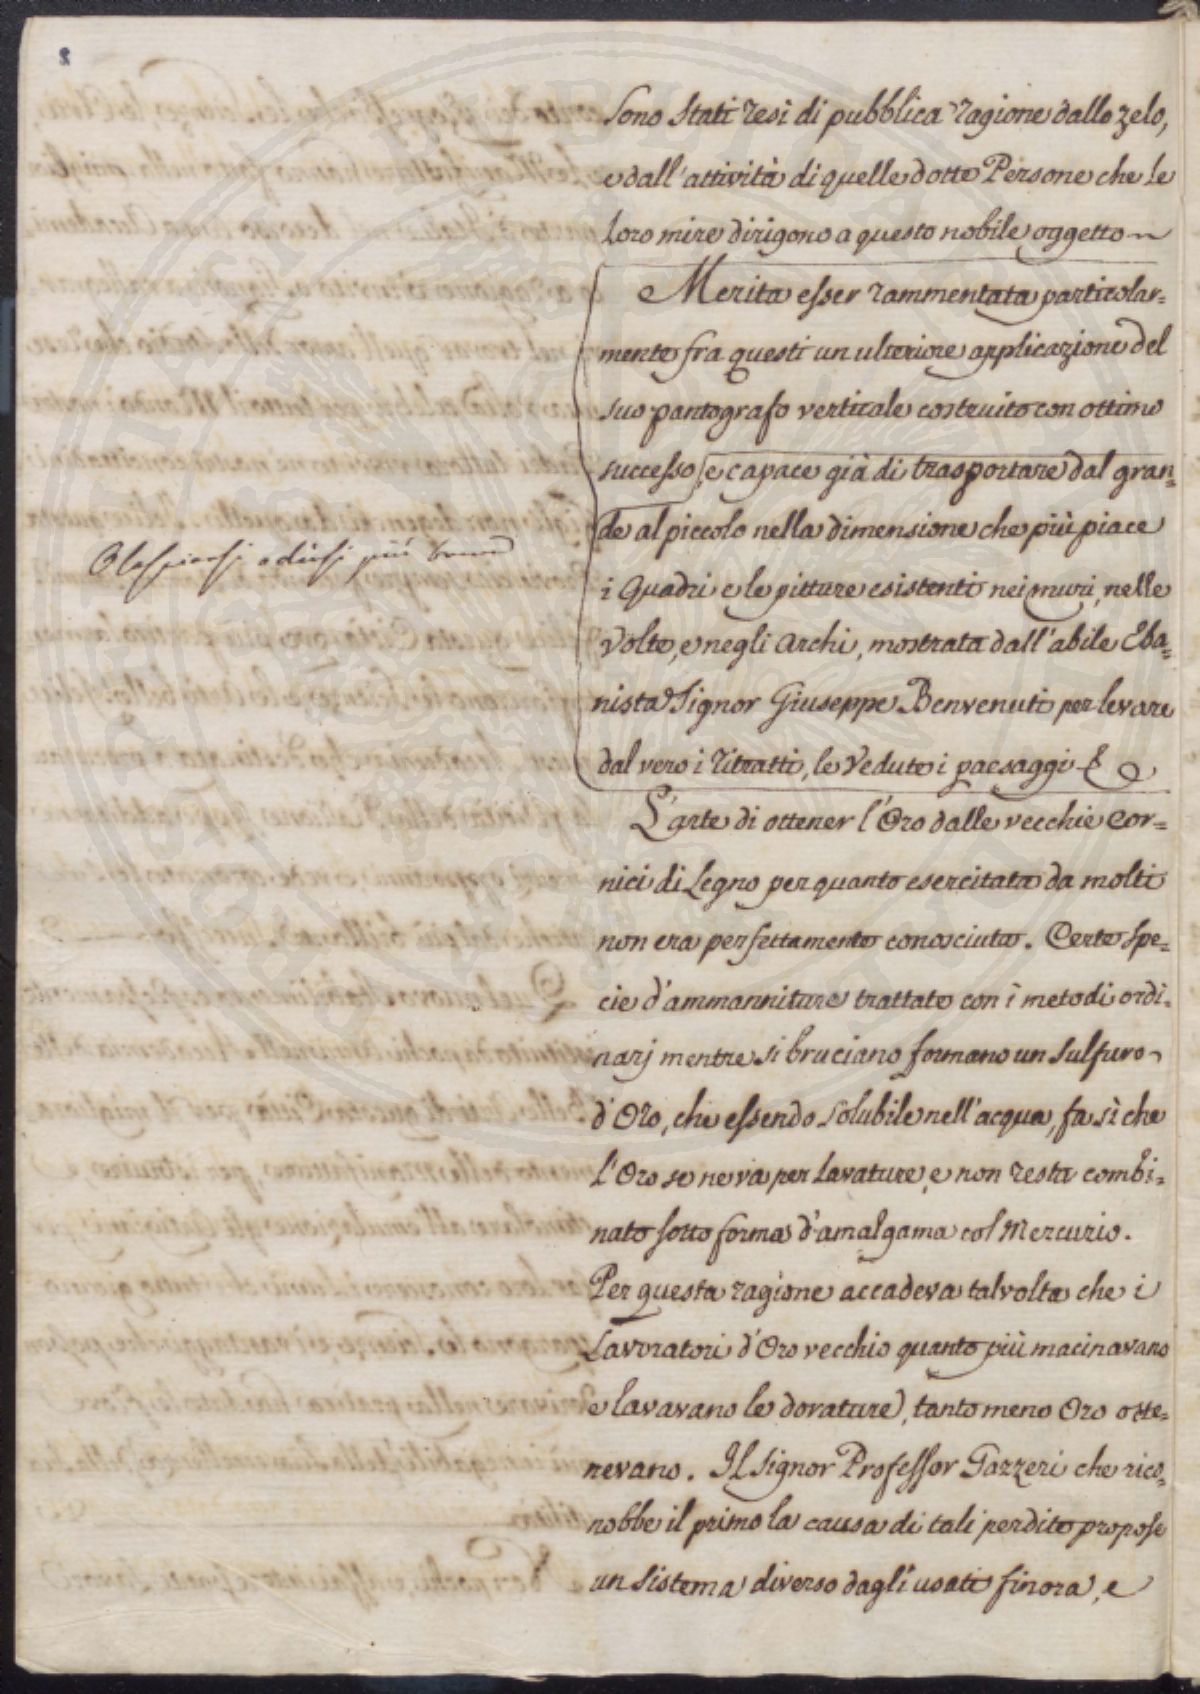 2
sono stati resi di pubblica ragione dallo zelo,
e dall'attività di quelle dotte Persone che le
loro mire dirigono a questo nobile oggetto
Merita esser rammentata particolar=
mente fra questi un ulteriore applicazione del
suo pantografo verticale costruito con ottimo
successo, e capace già di trasportare dal gran=
de al piccolo nella dimensione che più piace
i Quadri e le pitture esistenti nei muri, nelle
Volte, e negli Archi, mostrata dall'abile Eba=
nista Signor Giuseppe Benvenuti per levare
dal vero i ritratti, le Vedute i paesaggi &
L'arte di ottener l'Oro dalle vecchie Cor=
nici di Legno per quanto esercitata da molti
non era perfettamente conosciuta. Certe spe=
cie d'ammanniture trattate con i metodi ordi=
narj mentre si bruciano formano un sulfuro
d'Oro, che essendo solubile nell'acqua, fa sì che
l'Oro se ne va per lavature, e non resta combi=
nato sotto forma d'amalgama col Mercurio.
Per questa ragione accadeva talvolta che i
Lavoratori d'Oro vecchio quanto più macinavano
e lavavano le dorature, tanto meno Oro otte=
nevano. Il Signor Professor Gazzeri che rico=
nobbe il primo la causa di tali perdite propose
un sistema diverso dagli usati finora, e
più